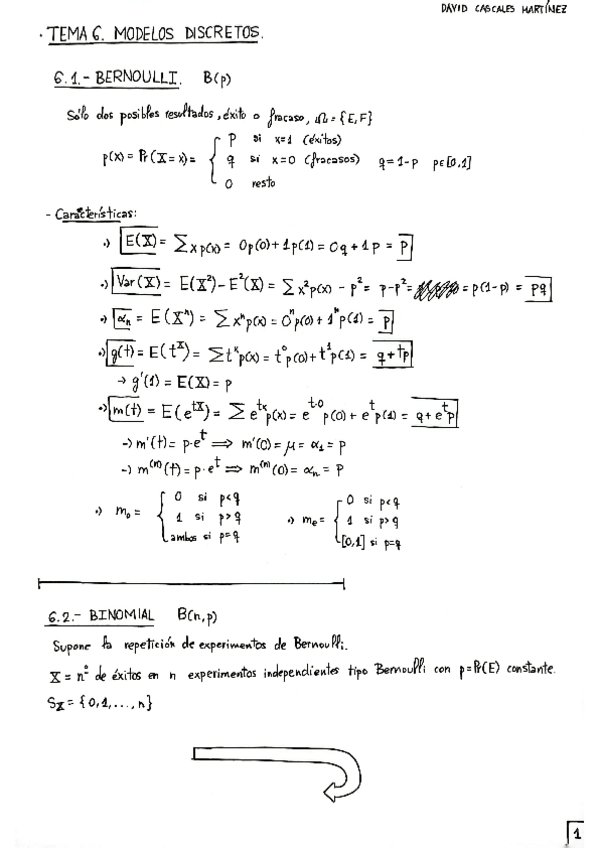 DAVID CASCALES MARTÍNEZ
· TEMA 6. MODELOS DISCRETOS.
6.1.- BERNOULLI. B(p)
Sólo dos posibles resultados, éxito o fracaso, Ω = {E, F}
p(x) = Pr(X = x) = { p si x=1 (éxitos)
q si x=0 (fracasos) q = 1-p p∈[0,1]
0 resto
- Características:
·) E(X) = ∑ x p(x) = 0p(0) + 1p(1) = 0q + 1p = p
·) Var(X) = E(X²) - E²(X) = ∑ x² p(x) - p² = p - p² = p(1-p) = pq
·) αₙ = E(Xⁿ) = ∑ xⁿ p(x) = 0ⁿ p(0) + 1ⁿ p(1) = p
·) g(t) = E(t^X) = ∑ t^x p(x) = t⁰ p(0) + t¹ p(1) = q + tp
→ g'(1) = E(X) = p
·) m(t) = E(e^{tX}) = ∑ e^{tx} p(x) = e^{t·0} p(0) + e^t p(1) = q + e^t p
→ m'(t) = p·e^t ⟹ m'(0) = μ = α₁ = p
→ m^{(n)}(t) = p·e^t ⟹ m^{(n)}(0) = αₙ = p
·) m₀ = { 0 si p<q ·) mₑ = { 0 si p<q
1 si p>q 1 si p>q
ambos si p=q [0,1] si p=q
6.2.- BINOMIAL B(n,p)
Supone la repetición de experimentos de Bernoulli.
X = nº de éxitos en n experimentos independientes tipo Bernoulli con p=Pr(E) constante.
S_X = {0, 1, ..., n}
1